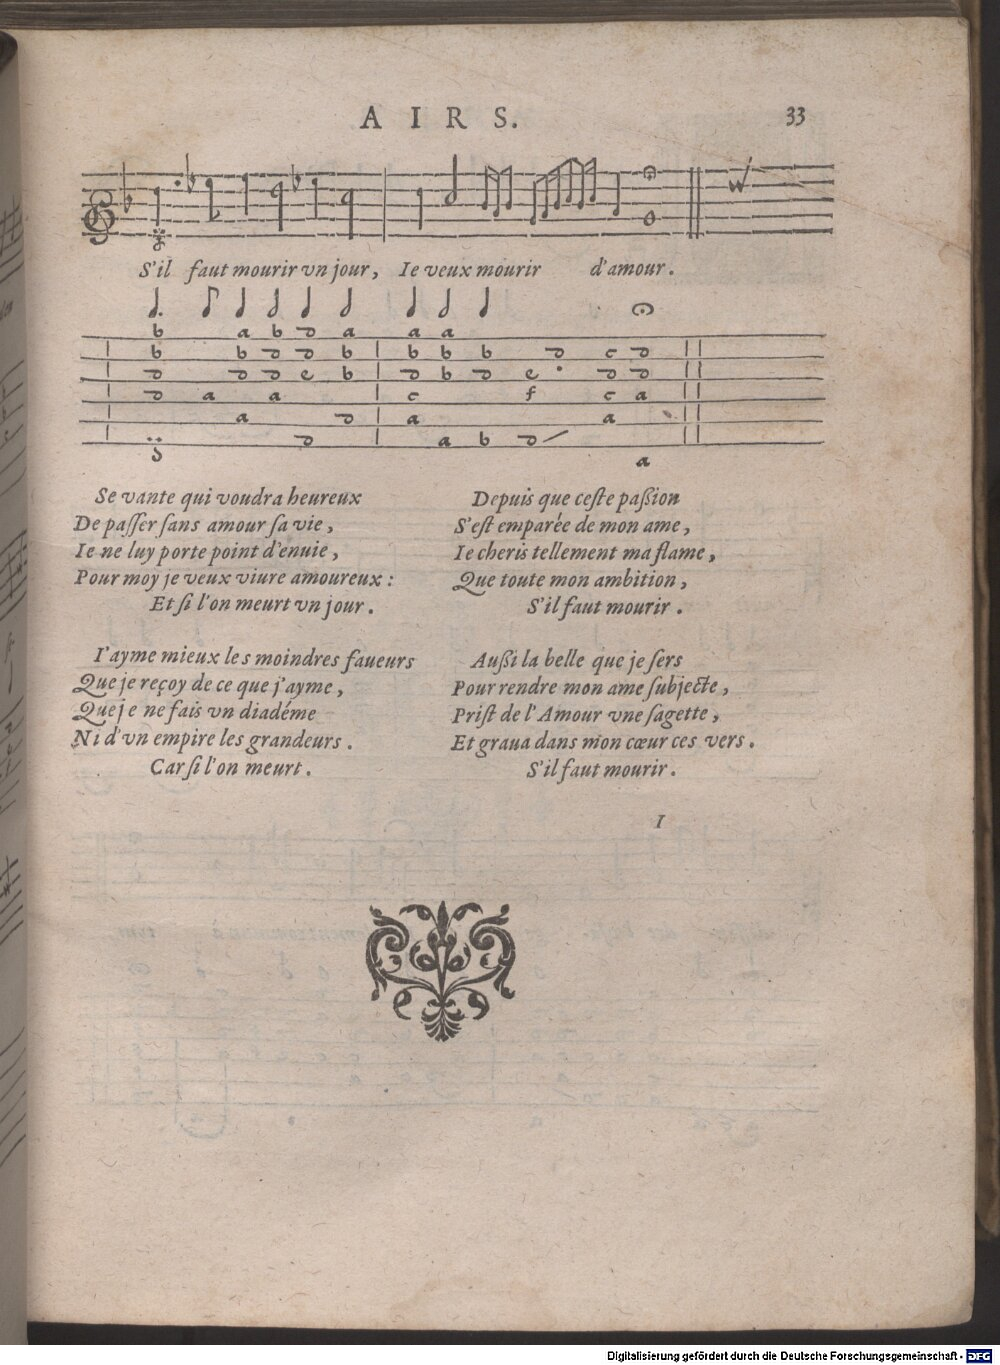 AIRS.
33
S'il faut mourir vn jour, Ie veux mourir d'amour.
Se vante qui voudra heureux
De paſſer ſans amour ſa vie,
Ie ne luy porte point d'enuie,
Pour moy je veux viure amoureux:
Et ſi l'on meurt vn jour.
I'ayme mieux les moindres faueurs
Que je reçoy de ce que j'ayme,
Que je ne fais vn diadéme
Ni d'vn empire les grandeurs.
Car ſi l'on meurt.
Depuis que ceſte paßion
S'eſt emparée de mon ame,
Ie cheris tellement ma flame,
Que toute mon ambition,
S'il faut mourir.
Außi la belle que je ſers
Pour rendre mon ame ſubjecte,
Priſt de l'Amour vne ſagette,
Et graua dans mon cœur ces vers.
S'il faut mourir.
I
Digitalisierung gefördert durch die Deutsche Forschungsgemeinschaft - DFG